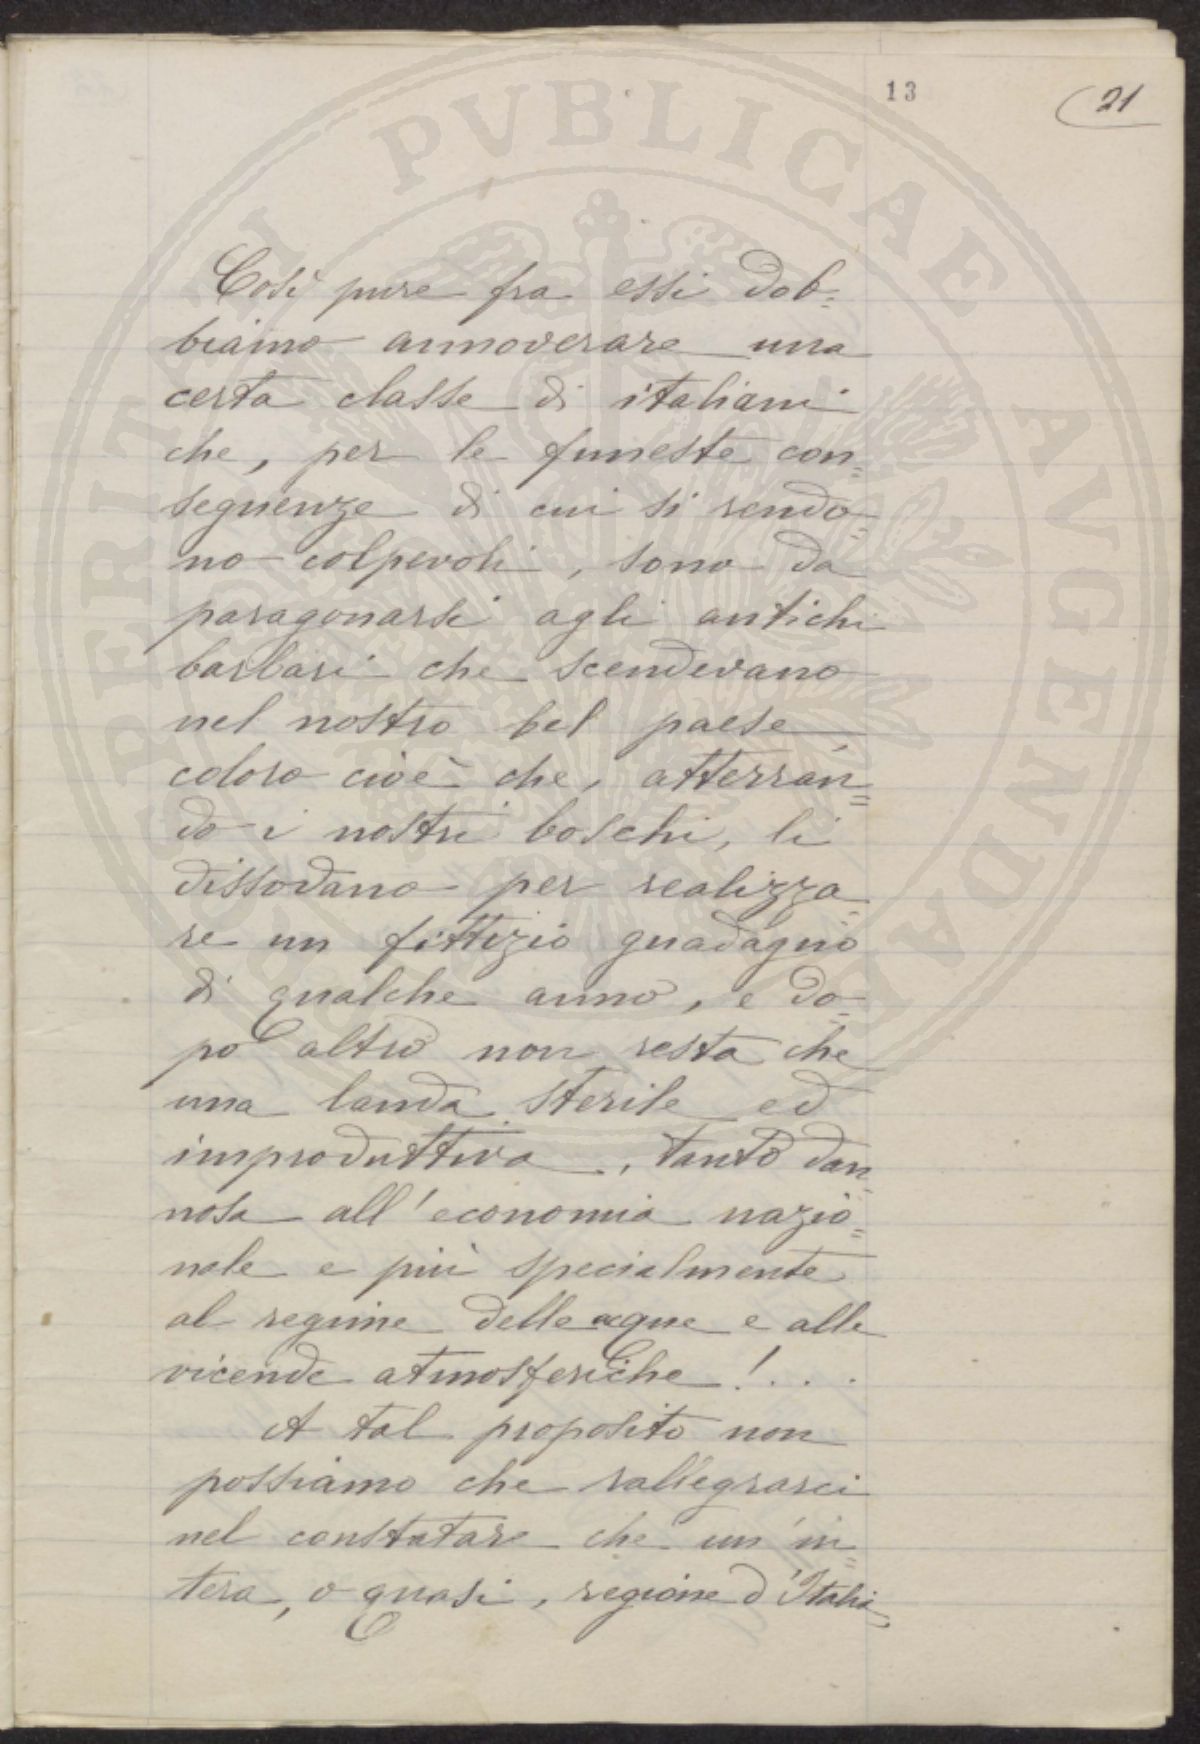 13
21
Così pure fra essi dob=
biamo annoverare una
certa classe di italiani
che, per le funeste con=
seguenze di cui si rendo=
no colpevoli, sono da
paragonarsi agli antichi
barbari che scendevano
nel nostro bel paese,
coloro cioè che, atterran=
do i nostri boschi, li
dissodano per realizza=
re un fittizio guadagno
di qualche anno, e do=
po altro non resta che
una landa sterile ed
improduttiva, tanto dan=
nosa all'economia nazio=
nale e più specialmente
al regime delle acque e alle
vicende atmosferiche!...
A tal proposito non
possiamo che rallegrarci
nel constatare che un'in=
tera, o quasi, regione d'Italia
PROSPERITATI PVBLICAE AVGENDAE